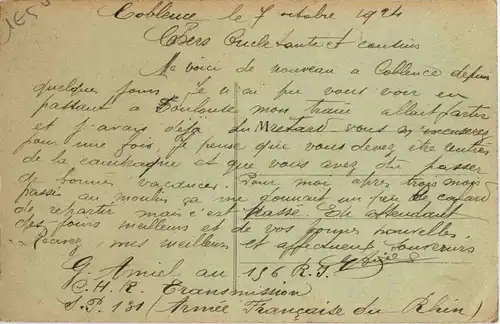 165
Coblence le 7 octobre 1924
Chers Oncle tante et cousins
Me voici de nouveau a Coblence depuis
quelques jours je n ai pu vous voir en
passant a Toulouse mon train allait partir
et j'avais déja du Retard. vous m'excuserez
pour une fois, je pense que vous devez être rentrés
de la campagne et que vous avez du passer
de bonnes vacances. Pour moi après trois mois
passés au moulin ça me donnait un peu de cafard
de repartir mais c'est passe. En attendant
des jours meilleurs et de vos bonnes nouvelles
Recevez mes meilleurs et affectueux souvenirs
G. Amiel au 156 R.I.
C.H.R. Transmission
S.P. 131 (Armée Française du Rhin)